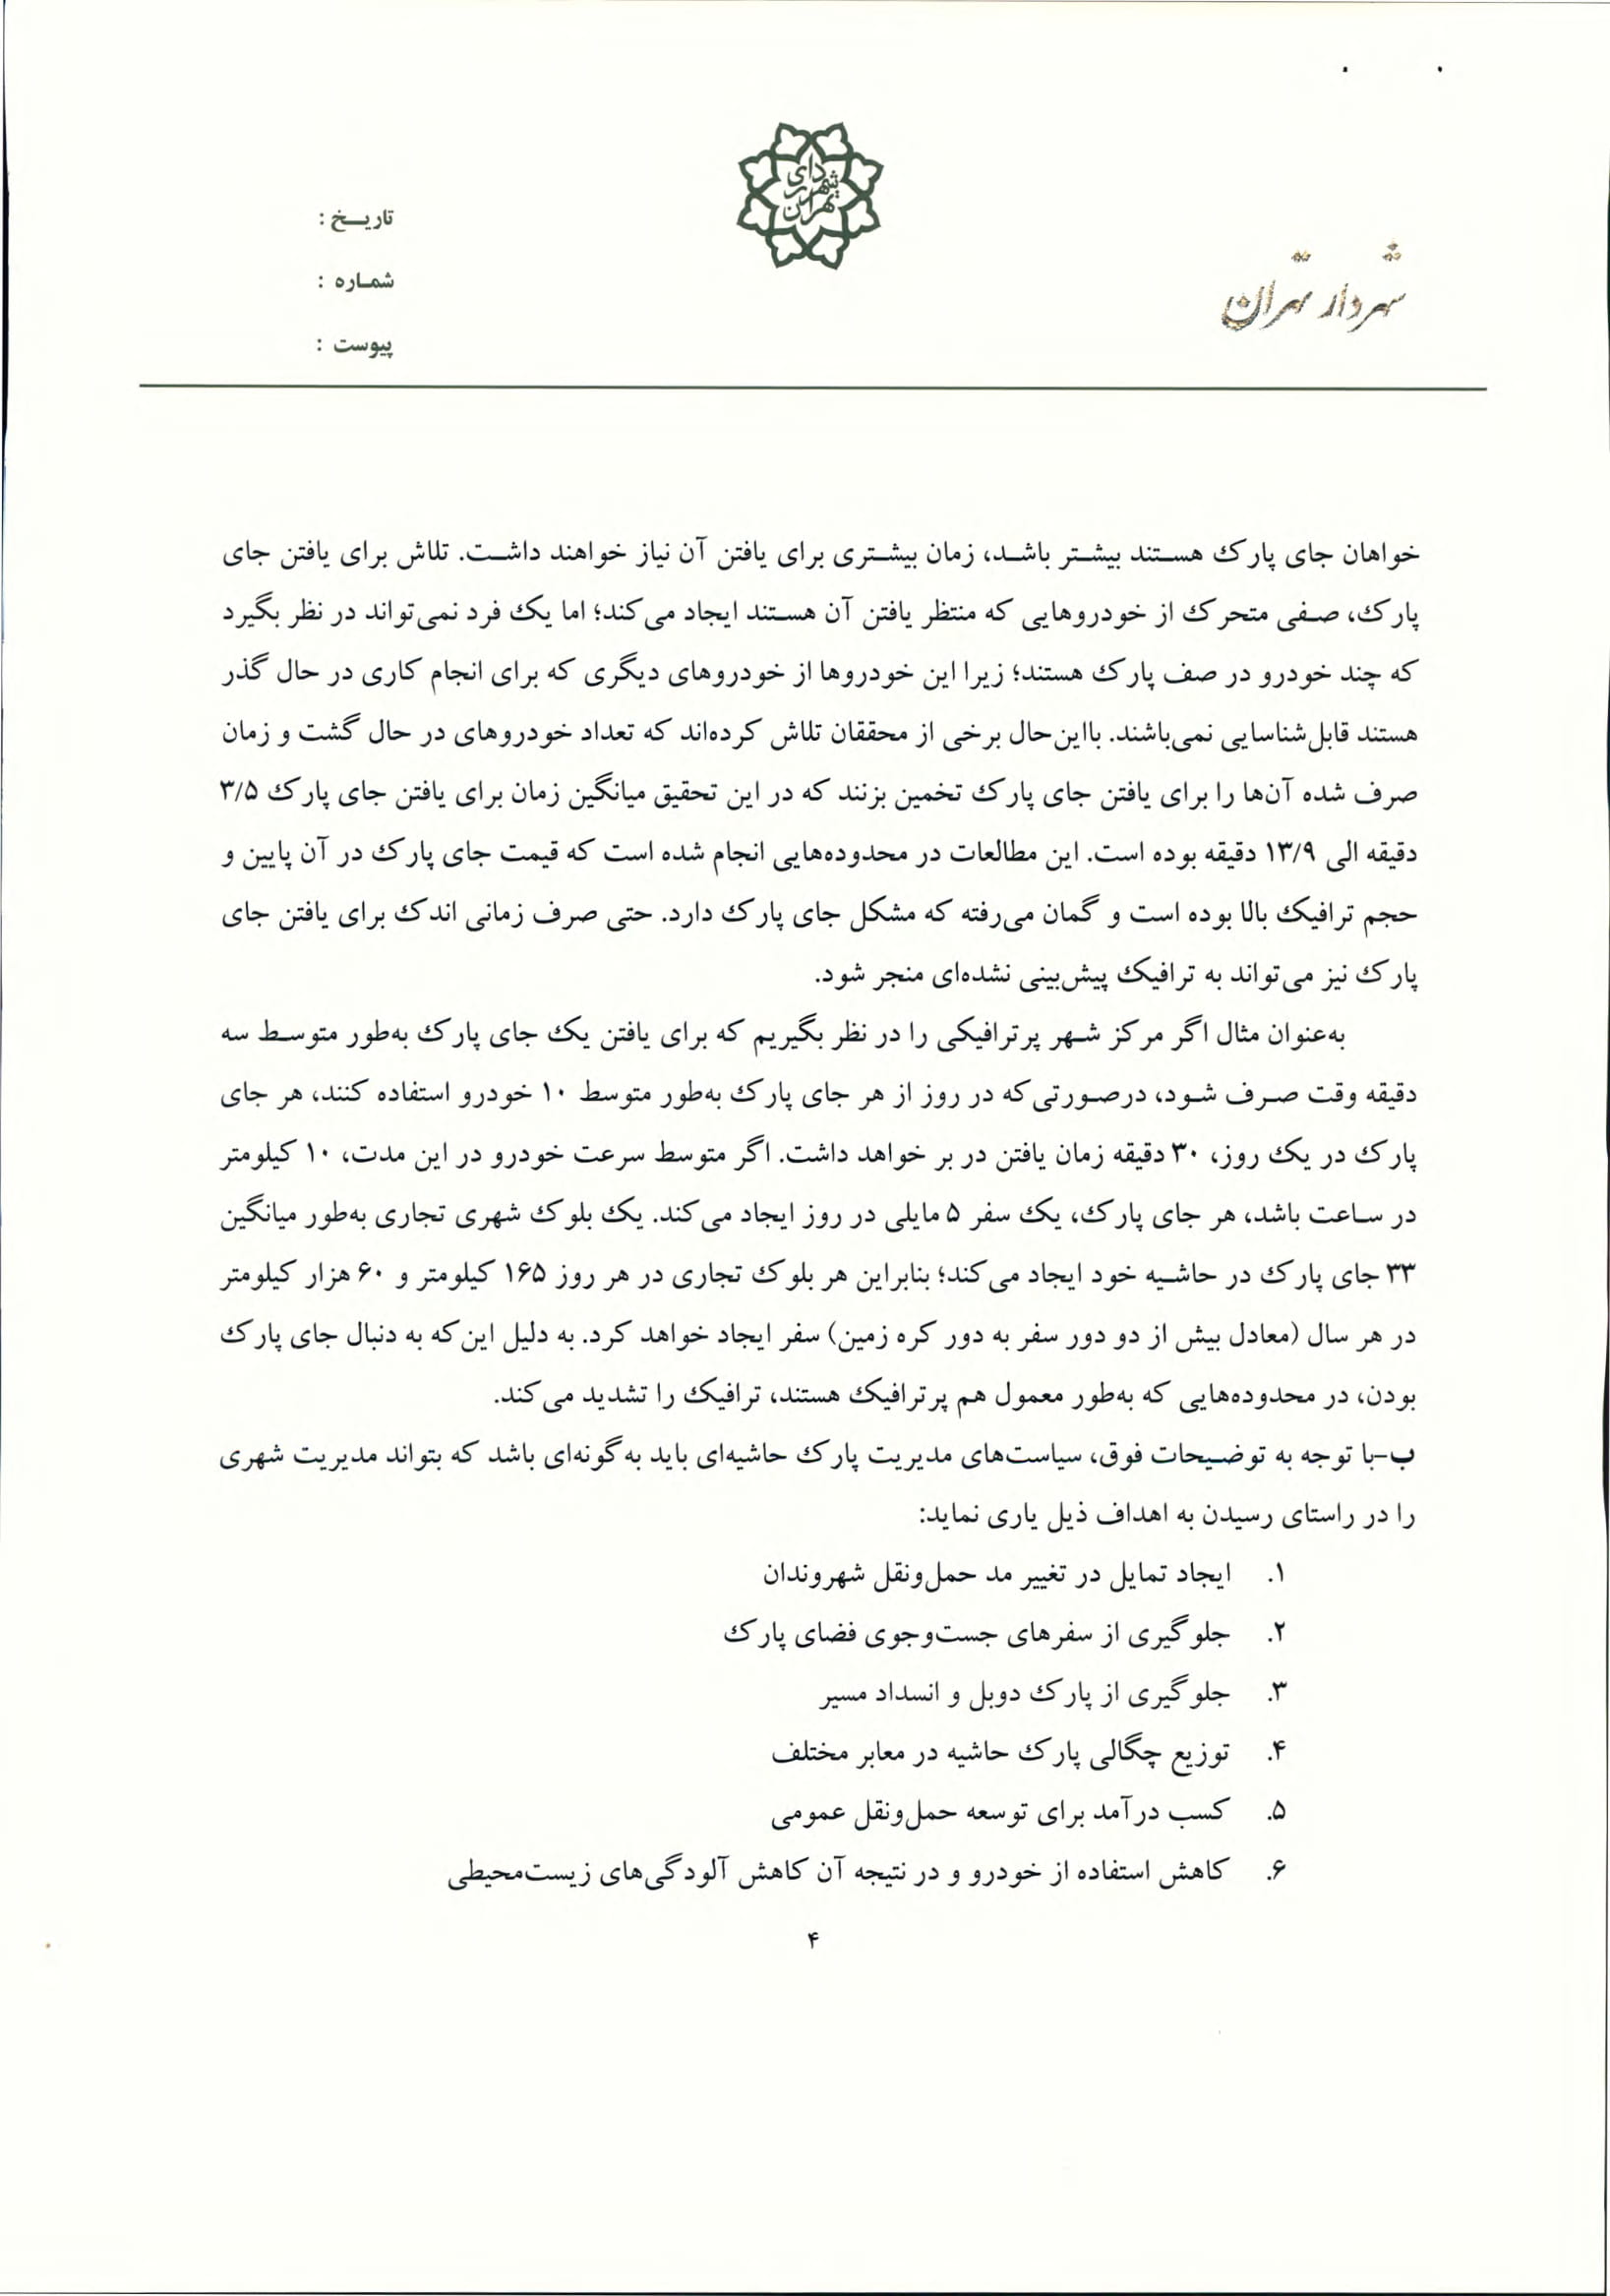 شهرداری تهران
شهردار تهران
تاریخ :
شماره :
پیوست :
خواهان جای پارک هستند بیشتر باشد، زمان بیشتری برای یافتن آن نیاز خواهند داشت. تلاش برای یافتن جای
پارک، صفی متحرک از خودروهایی که منتظر یافتن آن هستند ایجاد می‌کند؛ اما یک فرد نمی‌تواند در نظر بگیرد
که چند خودرو در صف پارک هستند؛ زیرا این خودروها از خودروهای دیگری که برای انجام کاری در حال گذر
هستند قابل‌شناسایی نمی‌باشند. بااین‌حال برخی از محققان تلاش کرده‌اند که تعداد خودروهای در حال گشت و زمان
صرف شده آن‌ها را برای یافتن جای پارک تخمین بزنند که در این تحقیق میانگین زمان برای یافتن جای پارک ۳/۵
دقیقه الی ۱۳/۹ دقیقه بوده است. این مطالعات در محدوده‌هایی انجام شده است که قیمت جای پارک در آن پایین و
حجم ترافیک بالا بوده است و گمان می‌رفته که مشکل جای پارک دارد. حتی صرف زمانی اندک برای یافتن جای
پارک نیز می‌تواند به ترافیک پیش‌بینی نشده‌ای منجر شود.
به‌عنوان مثال اگر مرکز شهر پرترافیکی را در نظر بگیریم که برای یافتن یک جای پارک به‌طور متوسط سه
دقیقه وقت صرف شود، درصورتی‌که در روز از هر جای پارک به‌طور متوسط ۱۰ خودرو استفاده کنند، هر جای
پارک در یک روز، ۳۰ دقیقه زمان یافتن در بر خواهد داشت. اگر متوسط سرعت خودرو در این مدت، ۱۰ کیلومتر
در ساعت باشد، هر جای پارک، یک سفر ۵ مایلی در روز ایجاد می‌کند. یک بلوک شهری تجاری به‌طور میانگین
۳۳ جای پارک در حاشیه خود ایجاد می‌کند؛ بنابراین هر بلوک تجاری در هر روز ۱۶۵ کیلومتر و ۶۰ هزار کیلومتر
در هر سال (معادل بیش از دو دور سفر به دور کره زمین) سفر ایجاد خواهد کرد. به دلیل این‌که به دنبال جای پارک
بودن، در محدوده‌هایی که به‌طور معمول هم پرترافیک هستند، ترافیک را تشدید می‌کند.
ب-با توجه به توضیحات فوق، سیاست‌های مدیریت پارک حاشیه‌ای باید به‌گونه‌ای باشد که بتواند مدیریت شهری
را در راستای رسیدن به اهداف ذیل یاری نماید:
۱. ایجاد تمایل در تغییر مد حمل‌ونقل شهروندان
۲. جلوگیری از سفرهای جست‌وجوی فضای پارک
۳. جلوگیری از پارک دوبل و انسداد مسیر
۴. توزیع چگالی پارک حاشیه در معابر مختلف
۵. کسب درآمد برای توسعه حمل‌ونقل عمومی
۶. کاهش استفاده از خودرو و در نتیجه آن کاهش آلودگی‌های زیست‌محیطی
۴